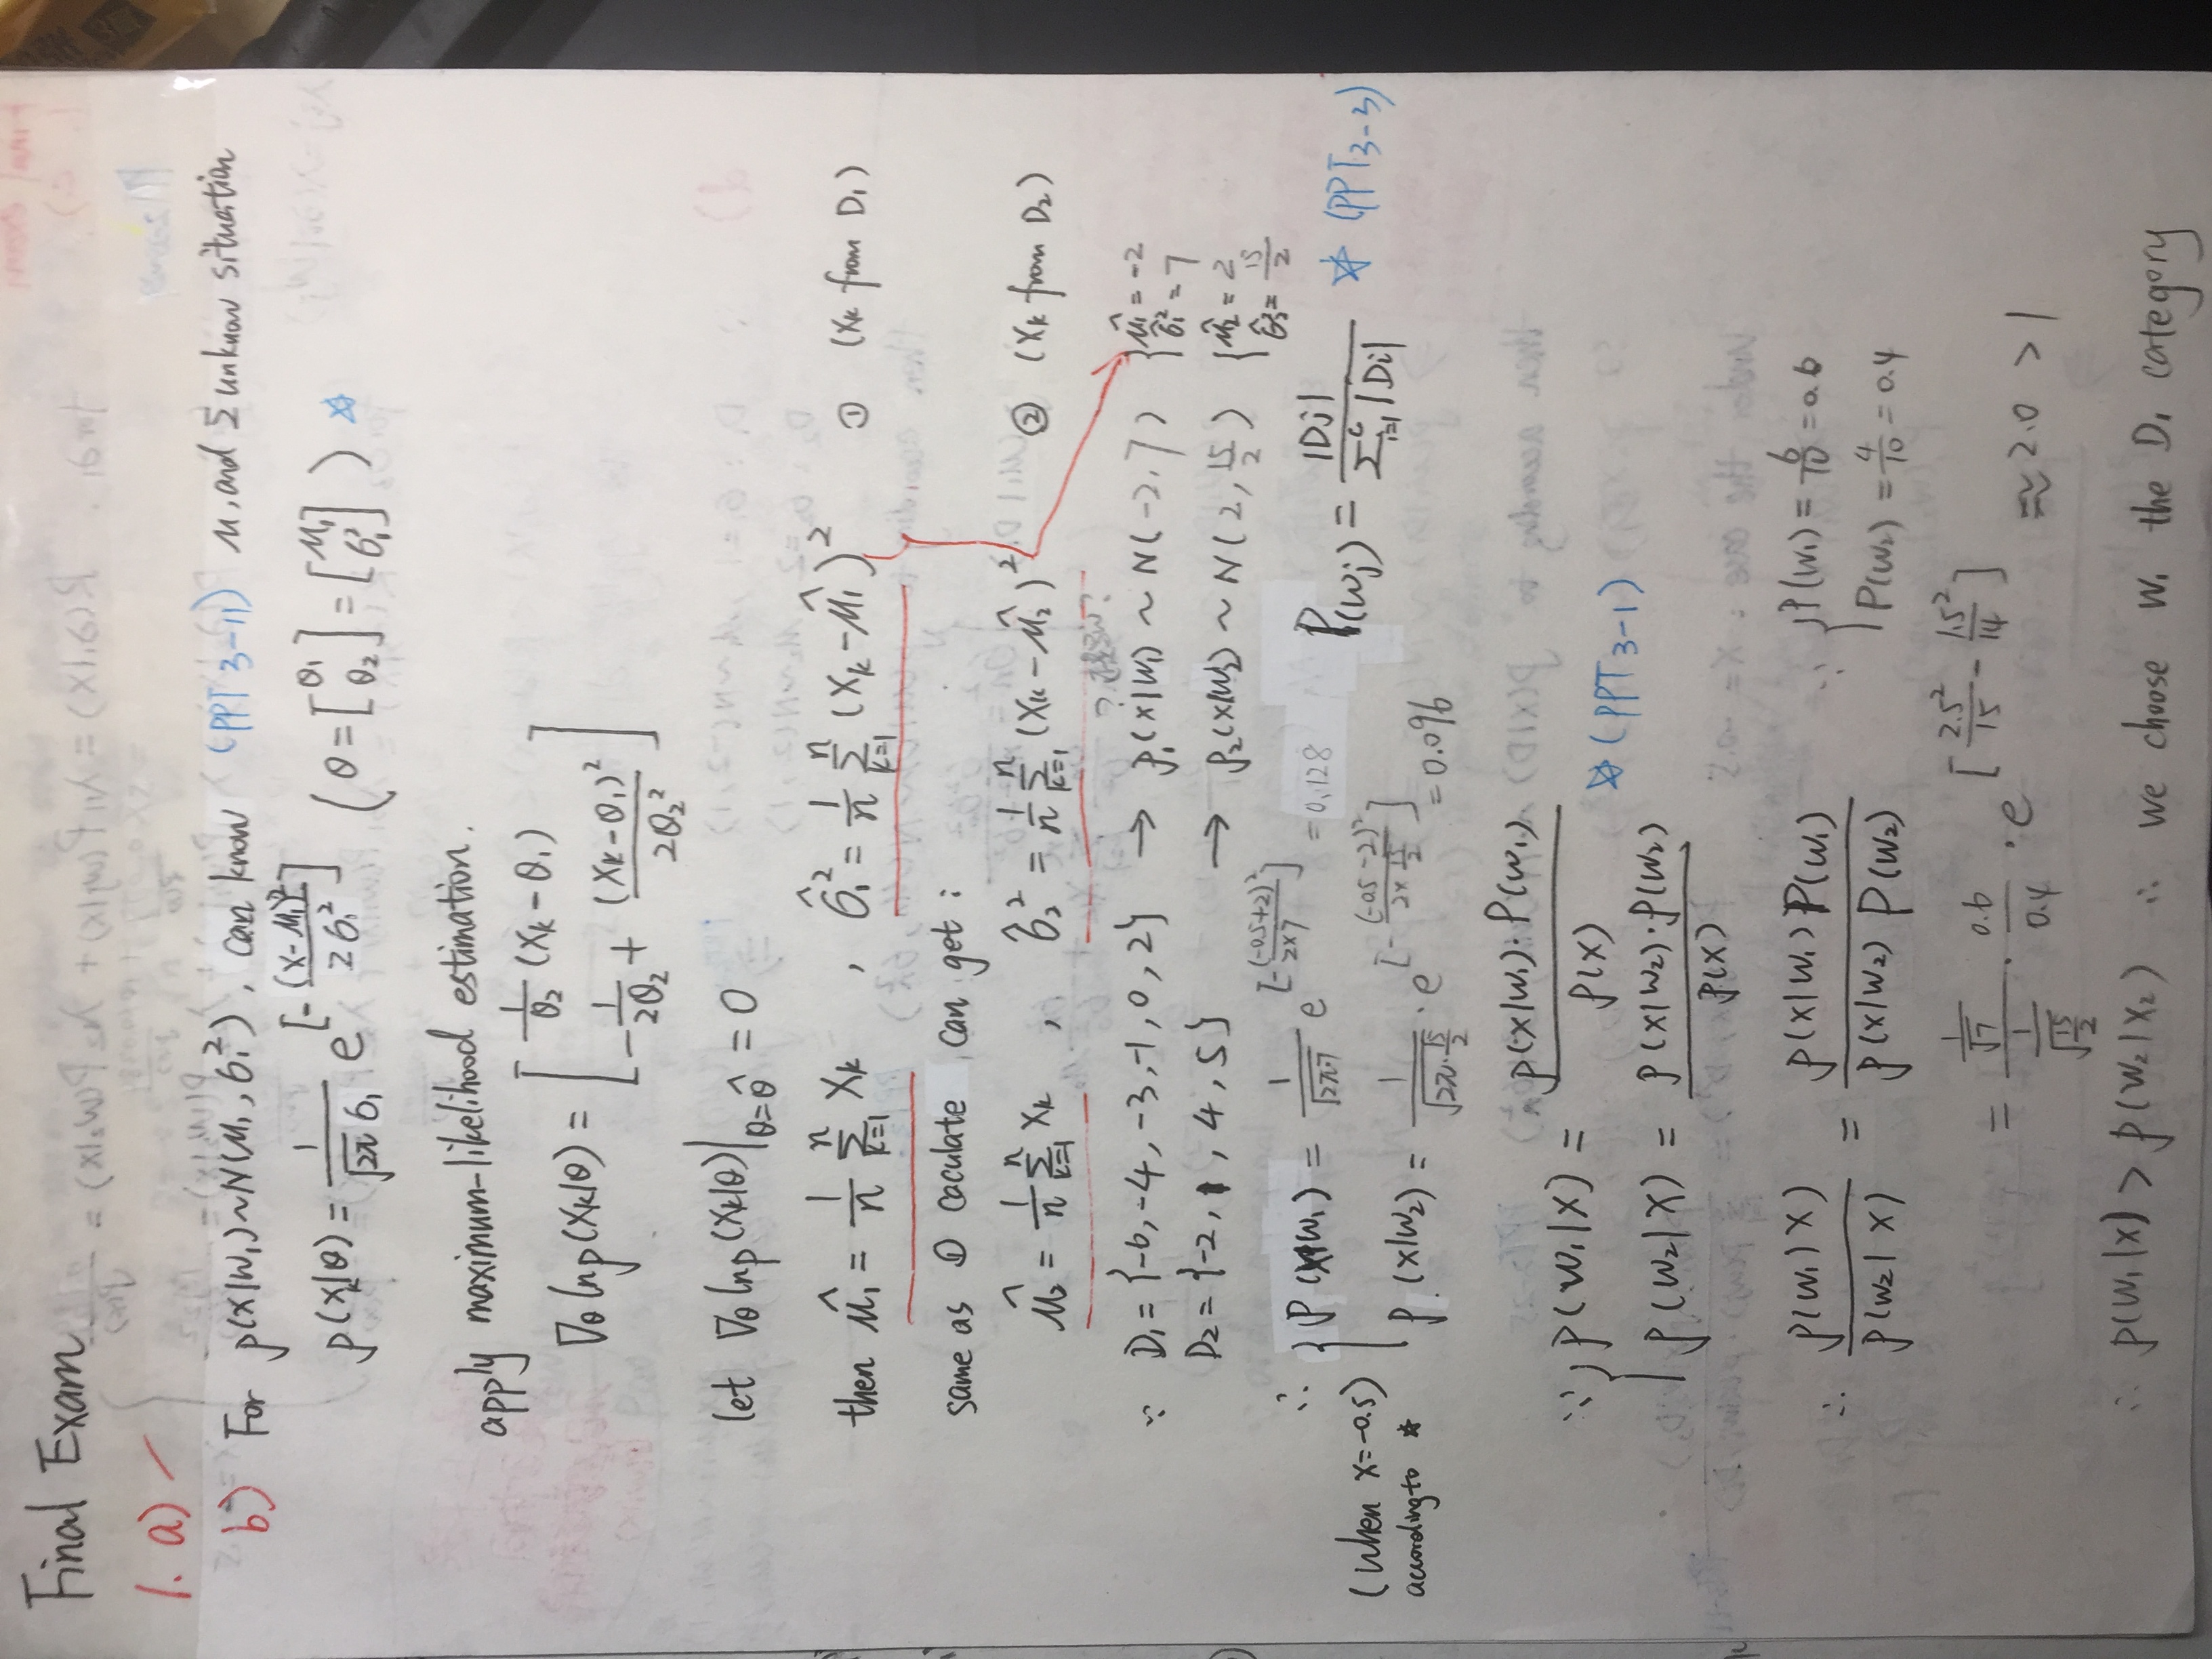 Final Exam
1. a) –
b) For p(x|w₁)~N(μ₁, σ₁²), can know (PPT 3-11) μ, and Σ unknow situation
p(xₖ|θ) = 1/(√2π σ₁) e^[-(x-μ₁)²/2σ₁²] (θ = [θ₁ θ₂] = [μ₁ σ₁²]) ☆
apply maximum-likelihood estimation.
∇θ ln p(xₖ|θ) = [1/θ₂ (xₖ - θ₁) ; -1/(2θ₂) + (xₖ-θ₁)²/(2θ₂²)]
let ∇θ ln p(xₖ|θ)|θ=θ̂ = 0
then μ̂₁ = 1/n Σₖ₌₁ⁿ xₖ , σ̂₁² = 1/n Σₖ₌₁ⁿ (xₖ - μ̂₁)² ① (xₖ from D₁)
same as ① caculate can get :
μ̂₂ = 1/n Σₖ₌₁ⁿ xₖ , σ̂₂² = 1/n Σₖ₌₁ⁿ (xₖ - μ̂₂)² ② (xₖ from D₂)
∵ D₁ = {-6, -4, -3, -1, 0, 2} → p₁(x|w₁) ~ N(-2, 7) { μ̂₁ = -2 σ̂₁² = 7
D₂ = {-2, 1, 4, 5} → p₂(x|w₂) ~ N(2, 15/2) { μ̂₂ = 2 σ̂₂² = 15/2
∴ { p(x|w₁) = 1/√(2π·7) e^[-(-0.5+2)²/(2×7)] = 0.128
P(wⱼ) = |Dj| / Σᵢ₌₁ᶜ |Di| ☆ (PPT 3-3)
(when x=-0.5)
according to ☆
p(x|w₂) = 1/√(2π·15/2) · e^[-(-0.5-2)²/(2×15/2)] = 0.096
∵ { p(w₁|x) = p(x|w₁)·P(w₁) / p(x)
☆ (PPT 3-1)
p(w₂|x) = p(x|w₂)·p(w₂) / p(x)
∴ p(w₁)x) / p(w₂|x) = p(x|w₁) P(w₁) / p(x|w₂) P(w₂) ∵ { P(w₁) = 6/10 = 0.6
P(w₂) = 4/10 = 0.4
= (1/√7) / (1/√(15/2)) · 0.6/0.4 · e^[2.5²/15 - 1.5²/14] ≈ 2.0 > 1
∴ p(w₁|x) > p(w₂|x₂) ∴ we choose w₁ the D₁ category